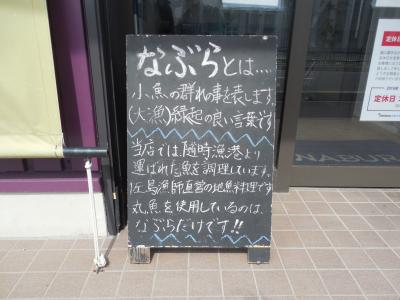 なぶらとは....
小魚の群れの事を表します。
(大漁)縁起の良い言葉です
当店では、随時漁港より
運ばれた魚を調理しています。
佐島漁師直営の地魚料理です
丸魚を使用しているのは、
なぶらだけです!!
定休日
定休日
NABUR